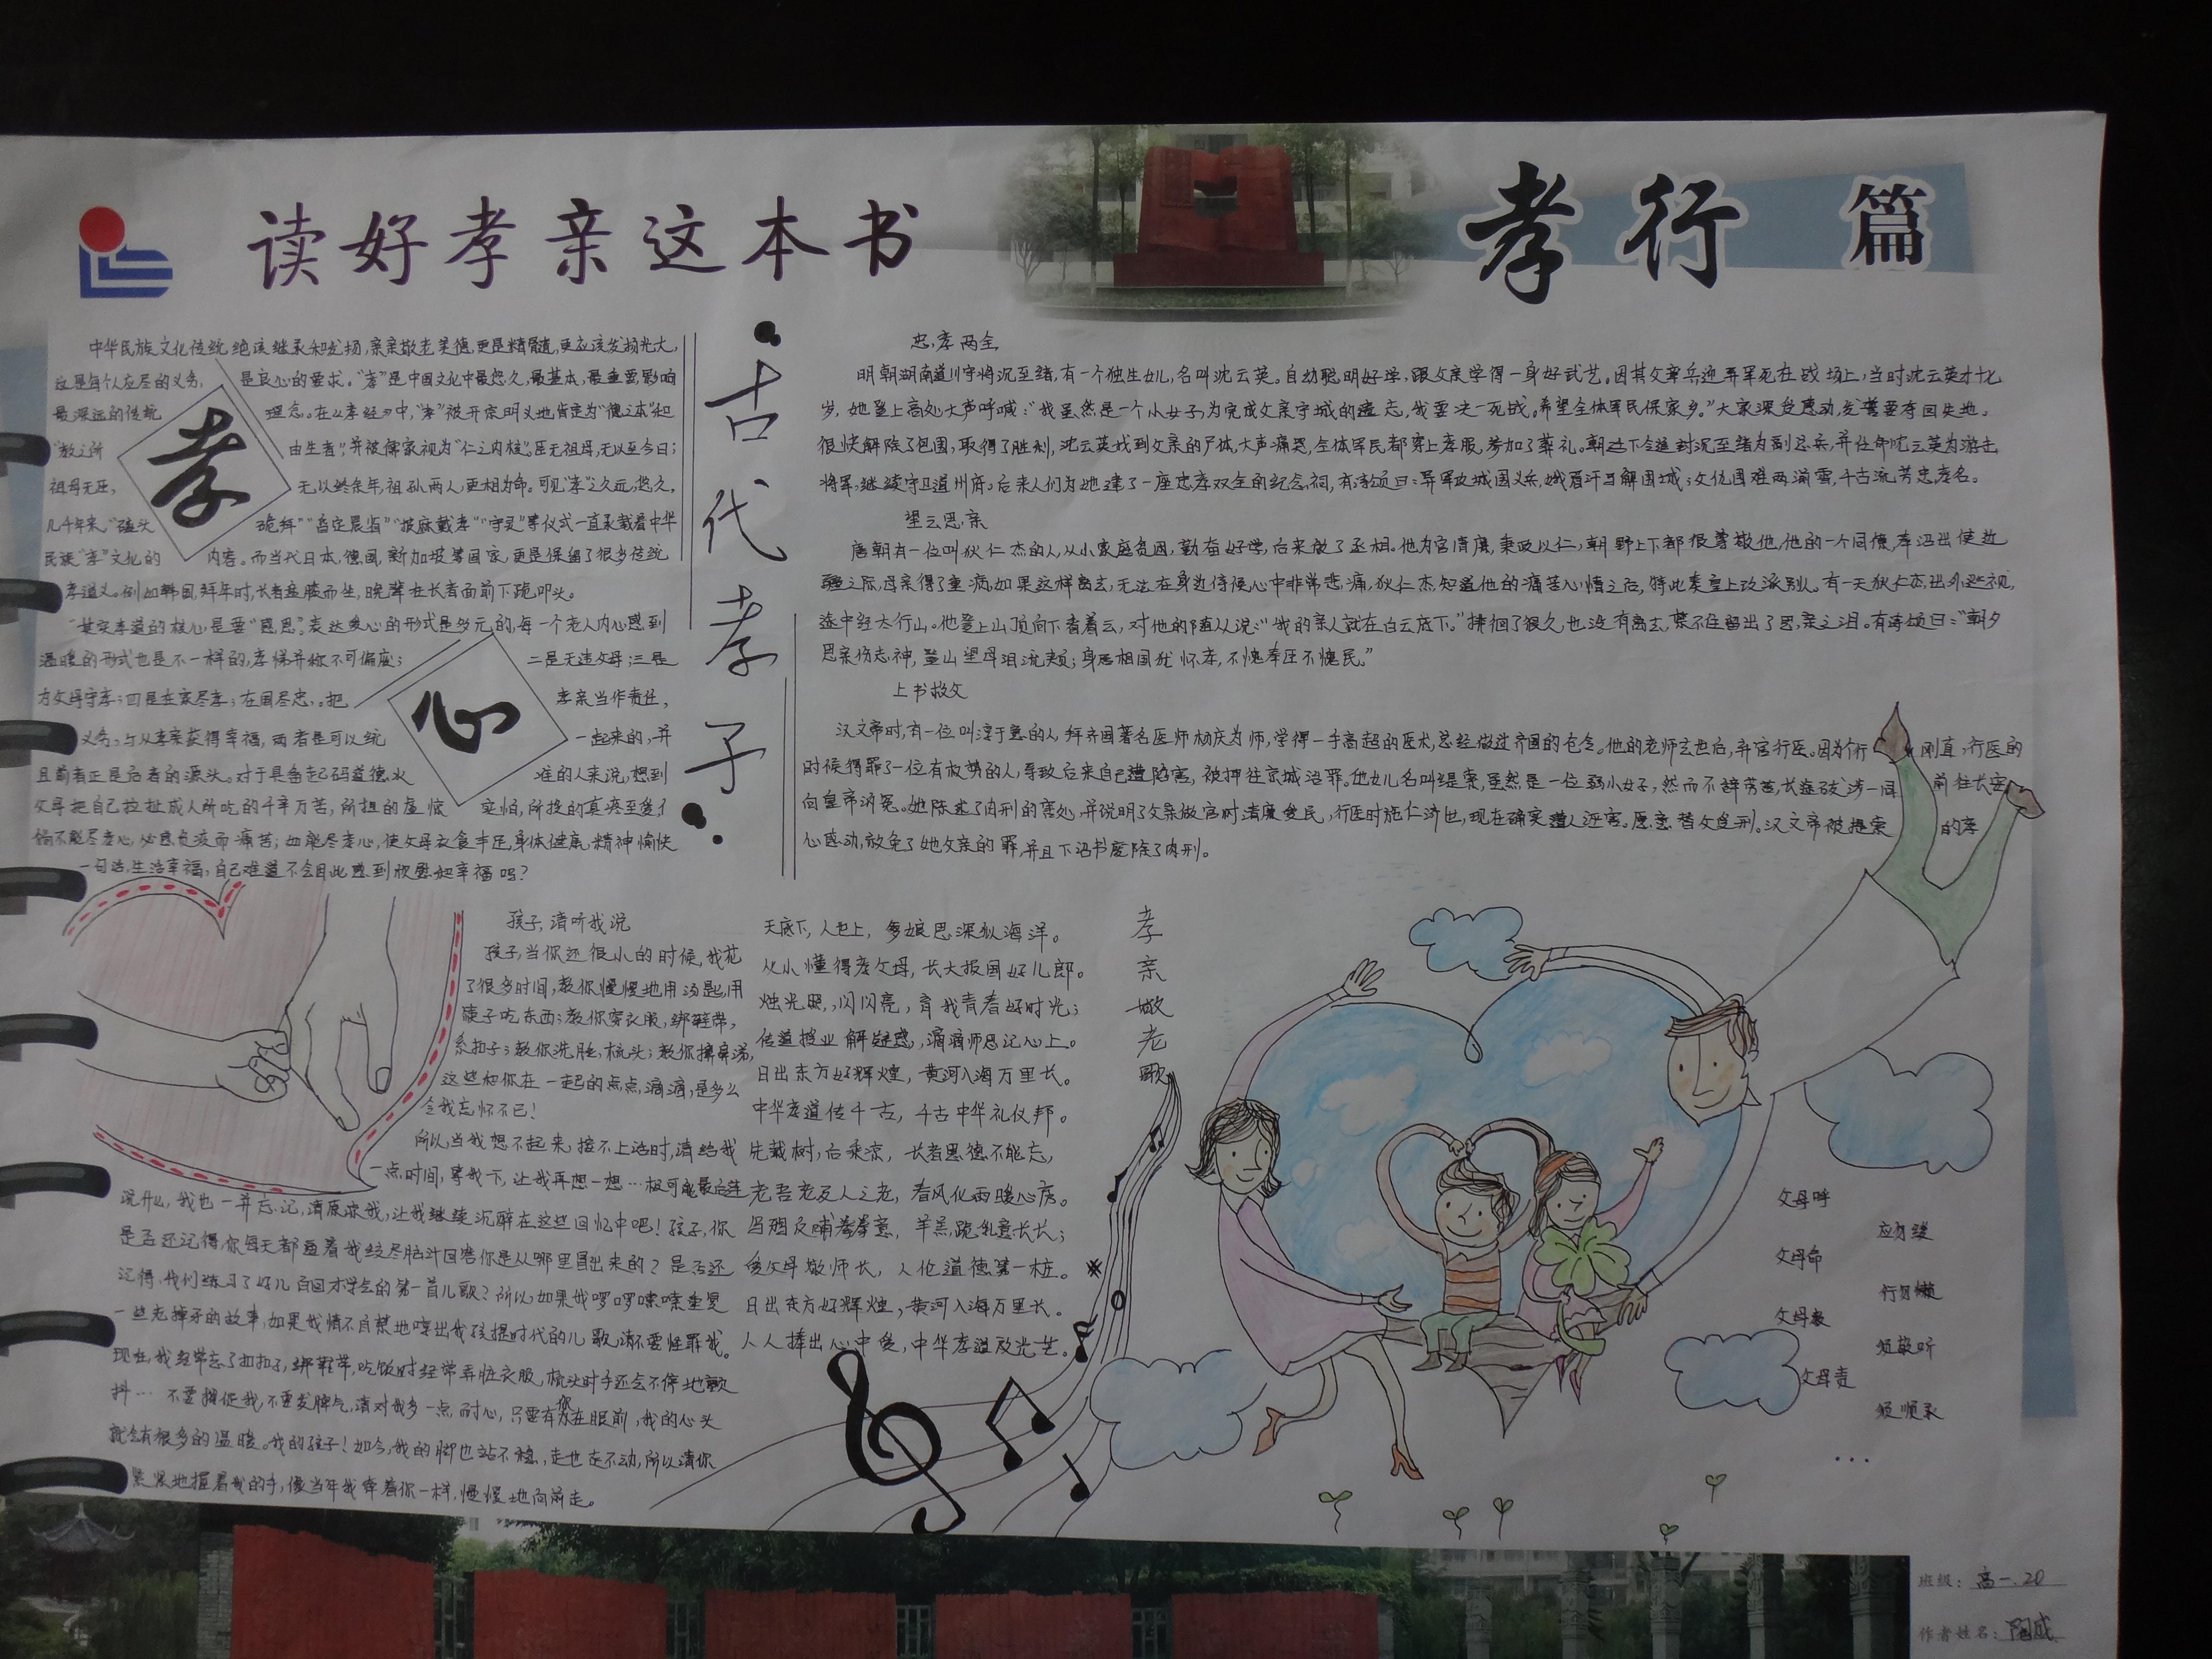 读好孝亲这本书
孝行 篇
中华民族文化传统绝该继承和发扬,亲亲敬老美德,更是精髓,更应该发扬光大,
这是每个人应尽的义务, 是良心的要求。“孝”是中国文化中最悠久,最基本,最重要,影响
最深远的传统 理念。在《孝经》中,“孝”被开宗明义地肯定为“德之本”和
“教之所 由生者”,并被儒家视为“仁之内核”。臣无祖母,无以至今日;
祖母无臣, 无以终余年,祖孙两人,更相为命。可见“孝”之久远,悠久。
几千年来,“磕头 跪拜”“昏定晨省”“披麻戴孝”“守灵”等仪式一直承载着中华
民族“孝”文化的 内容。而当代日本,德国,新加坡等国家,更是保留了很多传统
孝道义。例如韩国,拜年时,长者盘膝而坐,晚辈在长者面前下跪叩头。
其实孝道的核心,是要“感恩”。表达爱心的形式是多元的,每一个老人内心感到
温暖的形式也是不一样的,孝悌并称不可偏废; 二是无违父母;三是
为父母守孝;四是在家尽孝;在国尽忠,。把 孝亲当作责任,
义务,与从孝亲获得幸福,两者是可以统 一起来的,并
且前者正是后者的源头。对于具备起码道德水 准的人来说,想到
父母把自己拉扯成人所吃的千辛万苦,所担的虚惊 实怕,所投的真疼至爱,
倘不能尽孝心,必感负疚而痛苦;如能尽孝心,使父母衣食丰足,身体健康,精神愉快
一句话,生活幸福,自己难道不会因此感到欣慰和幸福吗?
孝
心
古代孝子
忠,孝两全
明朝湖南道川守将沉至绪,有一个独生女儿,名叫沈云英。自幼聪明好学,跟父亲学得一身好武艺。因其父率兵迎弄军死在战场上,当时沈云英才十七
岁,她登上高处大声呼喊:“我虽然是一个小女子,为完成父亲守城的遗志,我要决一死战。希望全体军民保家乡。”大家深受感动,发誓要夺回失地。
很快解除了包围,取得了胜利,沈云英找到父亲的尸体,大声痛哭,全体军民都穿上孝服,参加了葬礼。朝廷下令追封沉至绪为副总兵,并任命沈云英为游击
将军,继续守卫道州府。后来人们为她建了一座忠孝双全的纪念祠,有诗颂曰:异军攻城围义兵,娥眉汗马解围城;父仇国难两湔雪,千古流芳忠孝名。
望云思亲
唐朝有一位叫狄仁杰的人,从小家庭贫困,勤奋好学,后来做了丞相。他为官清廉,秉政以仁,朝野上下都很尊敬他,他的一个同僚,奉诏出使边
疆之际,母亲得了重病,如果这样离去,无法在身边侍候,心中非常悲痛,狄仁杰知道他的痛苦心情之后,特此奏皇上改派别人。有一天狄仁杰出外巡视,
途中经太行山。他登上山顶向下看着云,对他的随从说:“我的亲人就在白云底下。”徘徊了很久,也没有离去,禁不住留出了思亲之泪。有诗颂曰:“朝夕
思亲伤志神,登山望母泪流频;身居相国犹怀孝,不愧奉臣不愧民。”
上书救父
汉文帝时,有一位叫淳于意的人,拜齐国著名医师杨庆为师,学得一手高超的医术,总经做过齐国的仓令。他的老师去世后,弃官行医。因为个行 刚直,行医的
时候得罪了一位有权势的人,导致后来自己遭陷害,被押往京城治罪。他女儿名叫缇萦,虽然是一位弱小女子,然而不辞劳苦,长途跋涉一同 前往长安
向皇帝诉冤。她陈述了肉刑的害处,并说明了父亲做官时清廉爱民,行医时施仁济世,现在确实遭人诬害。愿意替父受刑。汉文帝被缇萦 的孝
心感动,赦免了她父亲的罪,并且下诏书废除了肉刑。
孩子,请听我说
孩子,当你还很小的时候,我花
了很多时间,教你慢慢地用汤匙,用
筷子吃东西;教你穿衣服,绑鞋带,
系扣子;教你洗脸,梳头;教你擤鼻涕,
这些和你在一起的点点,滴滴,是多么
令我忘怀不已!
所以,当我想不起来,接不上话时,请给我
一点时间,等我下,让我再想一想…极可能最后连
说什么,我也一并忘记,请原谅我,让我继续沉醉在这些回忆中吧!孩子,你
是否还记得,你每天都逼着我绞尽脑汁回答你是从哪里冒出来的?是否还
记得,我们练习了好儿百回才学会的第一首儿歌?所以,如果我啰啰嗦嗦重复
一些老掉牙的故事,如果我情不自禁地哼出我孩提时代的儿歌,请不要怪罪我。
现在,我经常忘了扣扣子,绑鞋带,吃饭时经常弄脏衣服,梳头时手还会不停地颤
抖…不要催促我,不要发脾气,请对我多一点耐心,只要有你在眼前,我的心头
就会有很多的温暖。我的孩子!如今,我的脚也站不稳,走也走不动,所以请你
紧紧地握着我的手,像当年我牵着你一样,慢慢地向前走。
孝亲敬老歌
天底下,人世上,爹娘恩深似海洋。
从小懂得孝父母,长大报国好儿郎。
烛光照,闪闪亮,育我青春好时光;
传道授业解疑惑,滴滴师恩记心上。
日出东方好辉煌,黄河入海万里长。
中华孝道传千古,千古中华礼仪邦。
先栽树,后乘凉,长者恩德不能忘,
老吾老及人之老,春风化雨暖心房。
乌鸦反哺拳拳意,羊羔跪乳意长长;
爱父母敬师长,人伦道德第一桩。
日出东方好辉煌,黄河入海万里长。
人人捧出心中爱,中华孝道放光芒。
父母呼
应勿缓
父母命
行勿懒
父母教
须敬听
父母责
须顺承
…
班级:高一.20
作者姓名: